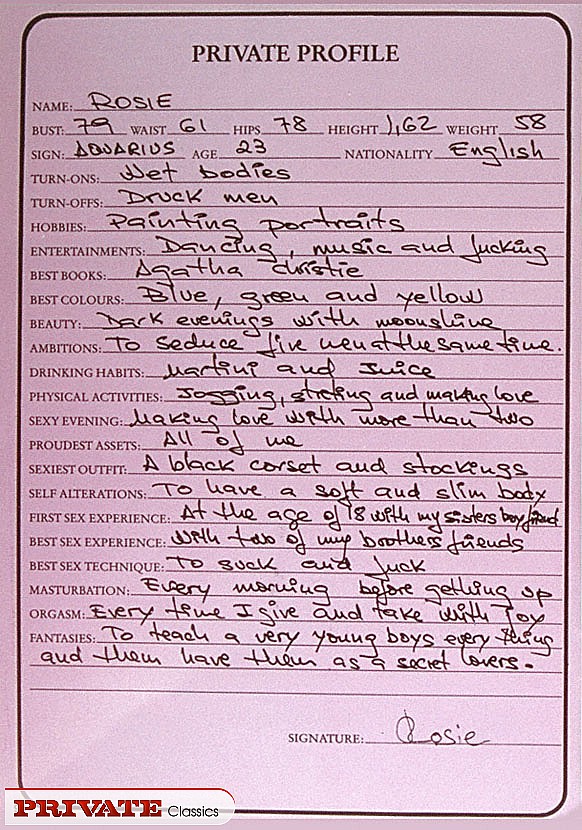 PRIVATE PROFILE
NAME: ROSIE
BUST: 79 WAIST 61 HIPS 78 HEIGHT 1,62 WEIGHT 58
SIGN: AQUARIUS AGE 23 NATIONALITY English
TURN-ONS: Wet bodies
TURN-OFFS: Druck men
HOBBIES: Painting portraits
ENTERTAINMENTS: Dancing, music and fucking
BEST BOOKS: Agatha Christie
BEST COLOURS: Blue, green and yellow
BEAUTY: Dark evenings with moonshine
AMBITIONS: To seduce five men at the same time.
DRINKING HABITS: Martini and Juice
PHYSICAL ACTIVITIES: Jogging, and making love
SEXY EVENING: Making love with more than two
PROUDEST ASSETS: All of me
SEXIEST OUTFIT: A black corset and stockings
SELF ALTERATIONS: To have a soft and slim body
FIRST SEX EXPERIENCE: At the age of 18 with my sisters boyfriend
BEST SEX EXPERIENCE: With two of my brothers friends
BEST SEX TECHNIQUE: To suck and fuck
MASTURBATION: Every morning before gething up
ORGASM: Every time I give and take with joy
FANTASIES:
SIGNATURE: Rosie
PRIVATE Classics